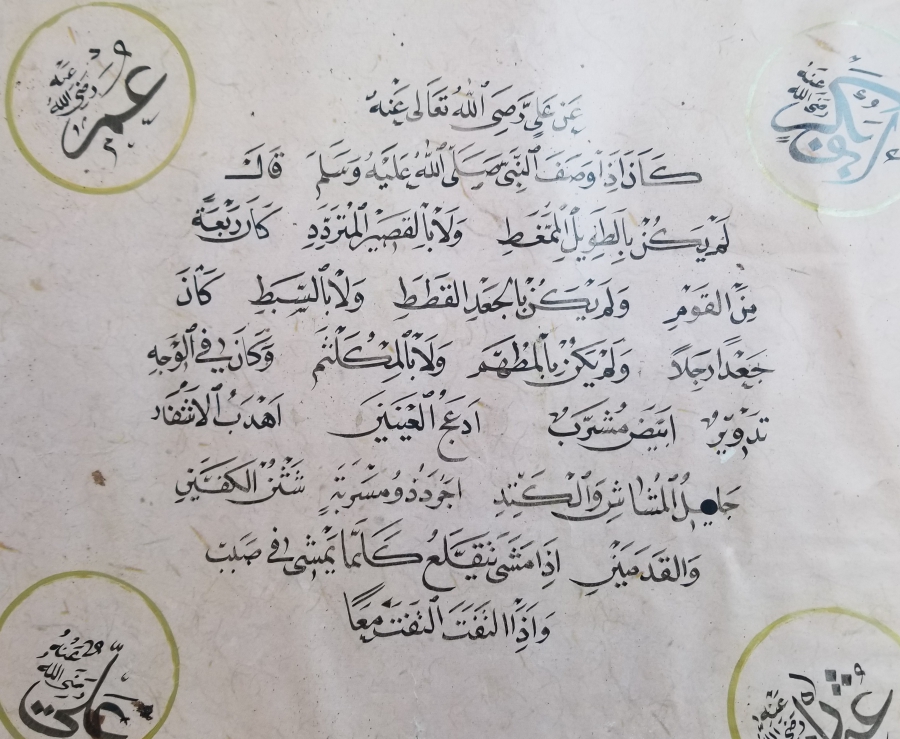 ابوبكر رضي الله عنه
عمر رضي الله عنه
عَن عَلِيٍّ رَضِيَ اللهُ تَعَالى عَنْهُ
كَانَ اذَا وَصَفَ النَّبِيَّ صَلَّى اللهُ عَلَيْهِ وَسَلَّمَ قَالَ
لَمْ يَكُنْ بِالطَّوِيلِ الْمُمَّغَطِ وَلَا بِالْقَصِيرِ الْمُتَرَدِّدِ كَانَ رَبْعَةً
مِنَ الْقَوْمِ وَلَمْ يَكُنْ بِالْجَعْدِ الْقَطَطِ وَلَا بِالسَّبِطِ كَانَ
جَعْدًا رَجِلًا وَلَمْ يَكُنْ بِالْمُطَهَّمِ وَلَا بِالْمُكَلْثَمِ وَكَانَ فِي الْوَجْهِ
تَدْوِيرٌ ابْيَضُ مُشْرَبٌ ادْعَجُ الْعَيْنَيْنِ اهْدَبُ الْاشْفَار
جَلِيلُ الْمُشَاشِ وَالْكَتَدِ اجْرَدُ ذُو مَسْرُبَةٍ شَثْنُ الْكَفَّيْنِ
وَالْقَدَمَيْنِ اذَا مَشَى يَتَقَلَّعُ كَانَّمَا يَمْشِي فِي صَبَبٍ
وَاذَا الْتَفَتَ الْتَفَتَ مَعًا
عثمان رضي الله عنه
علي رضي الله عنه